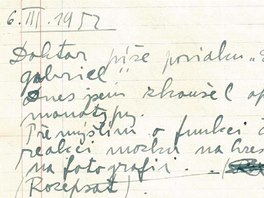 6. III. 1952
Doktor píše povídku „
gabriel".
Dnes jsem zkoušel
monotypy.
Přemýšlím o funkci
reakci mozku na
na fotografii.
(Rozepsat)